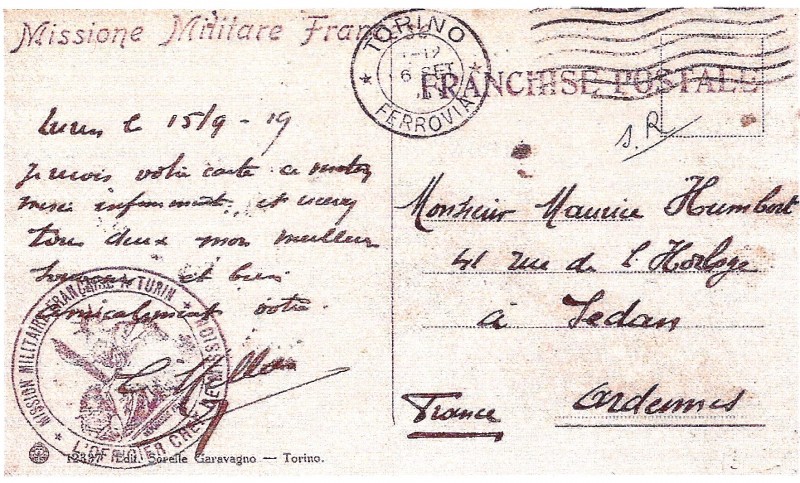 Missione Militare Fran
TORINO
FERROVIA
6 SET
FRANCHISE POSTALE
S.R
Turin le 15/9 - 19
Je reçois votre carte ce matin
merci infiniment et recevez
tous deux mon meilleur
souvenir et bien
amicalement votre
Monsieur Maurice Humbert
41 rue de l'Horloge
à Sedan
Ardennes
France
MISSION MILITAIRE FRANÇAISE A TURIN
L'OFFICIER CHEF
12337 Edit. Sorelle Garavagno — Torino.